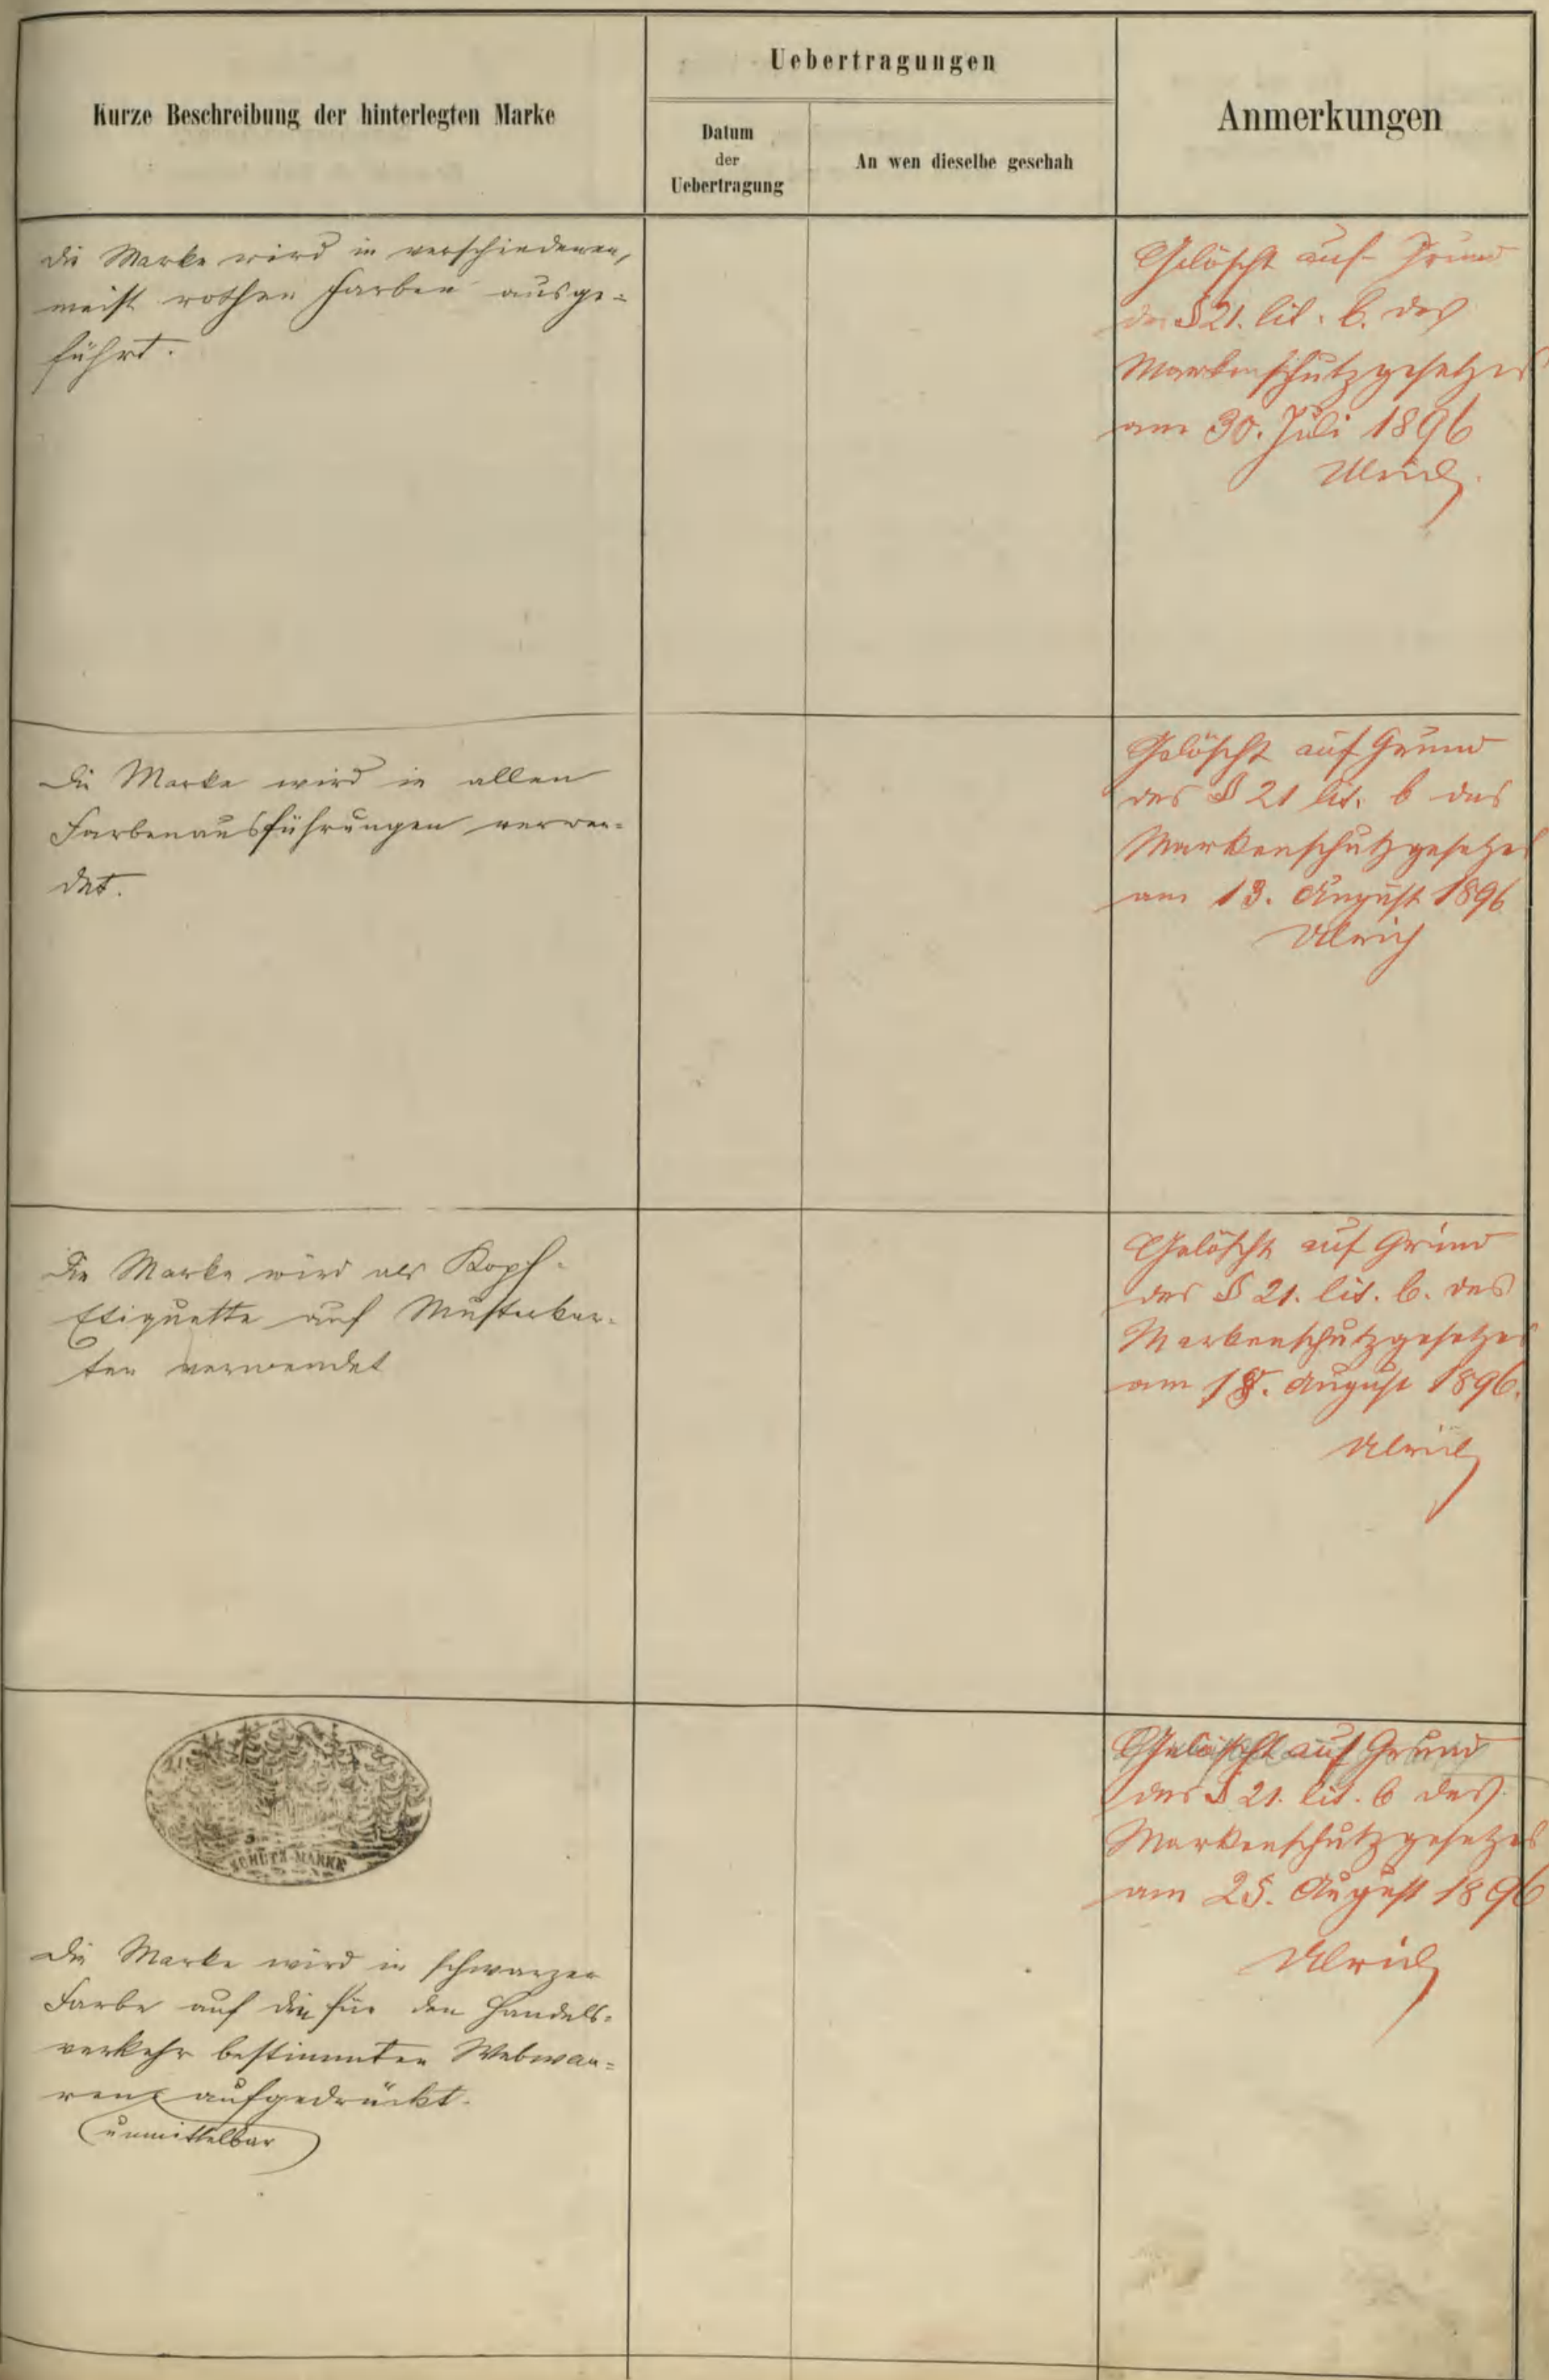 Kurze Beschreibung der hinterlegten Marke
Uebertragungen
Datum
der
Uebertragung
An wen dieselbe geschah
Anmerkungen
Die Marke wird in verschiedenen,
meist rothen Farben ausge=
führt.
Gelöscht auf Grund
des § 21. lit. b. des
Markenschutzgesetzes
am 30. Juli 1896
Ulrich.
Die Marke wird in allen
Farbenausführungen verwen=
det.
Gelöscht auf Grund
des § 21 lit. b des
Markenschutzgesetzes
am 13. August 1896
Ulrich
Die Marke wird als Kopf-
Etiquette auf Musterkar-
ten verwendet
Gelöscht auf Grund
des § 21. lit. b. des
Markenschutzgesetzes
am 18. August 1896.
Ulrich
SCHUTZ-MARKE
Die Marke wird in schwarzer
Farbe auf die für den Handels=
verkehr bestimmten Webwaa=
ren aufgedrückt.
unmittelbar
Gelöscht auf Grund
des § 21. lit. b des
Markenschutzgesetzes
am 25. August 1896
Ulrich